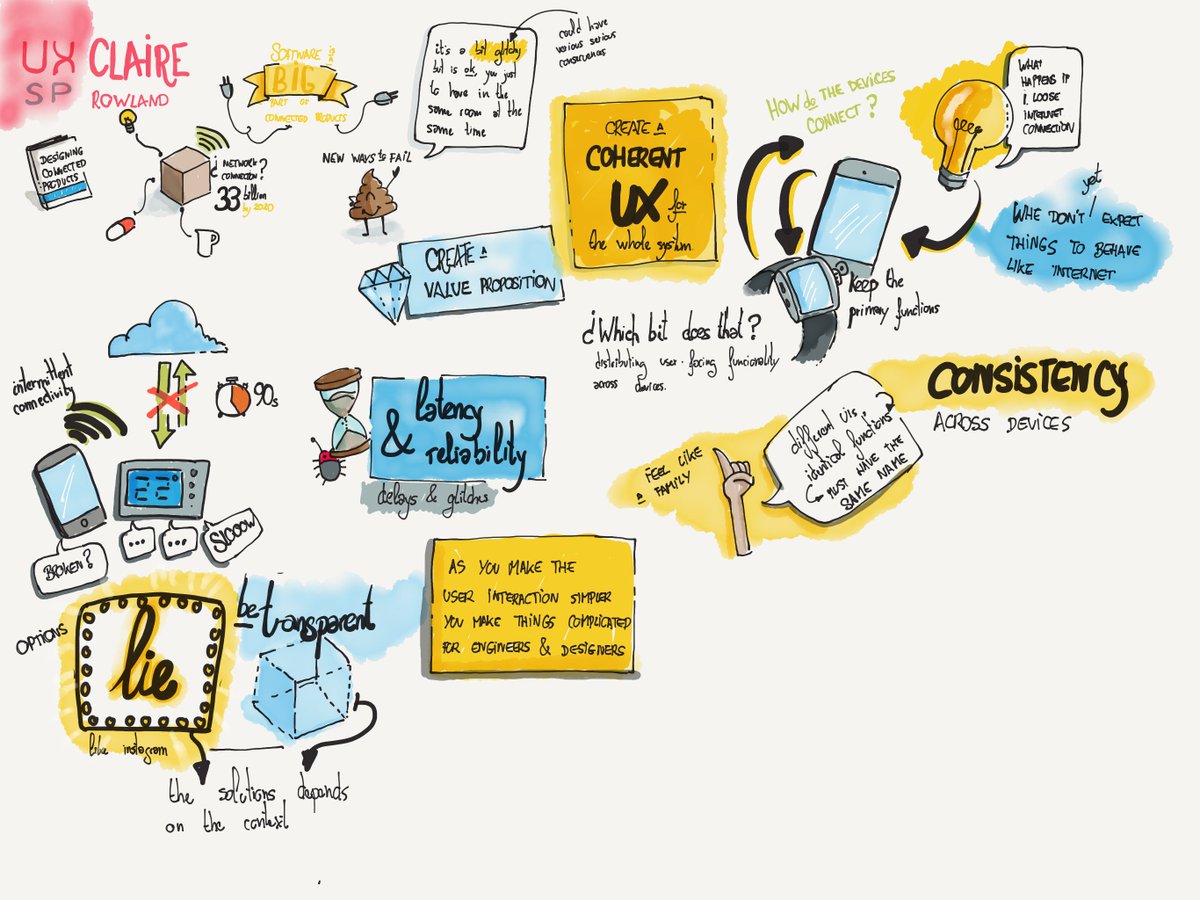 UX
SP
CLAIRE
ROWLAND
DESIGNING
CONNECTED
PRODUCTS
¿ NETWORK
CONNECTION?
33 billion
by 2020
SOFTWARE is a
BIG
PART OF
CONNECTED PRODUCTS
it's a bit glitchy
but is ok, you just
to have in the
same room at the
same time
could have
various serious
consecuences
NEW WAYS to FAIL
CREATE A
VALUE PROPOSITION
CREATE A
COHERENT
UX for
the whole system
HOW do THE DEVICES
CONNECT?
WHAT
HAPPENS IF
I LOOSE
INTERNET
CONNECTION
yet
WHE DON'T EXPECT
THINGS TO BEHAVE
LIKE INTERNET
keep the
primary functions
¿Which bit does that?
distributing user-facing funcionality
across devices.
CONSISTENCY
ACROSS DEVICES
different uis,
identical functions
MUST HAVE THE
SAME NAME
FEEL LIKE
A FAMILY
intermittent
connectivity
90s
22°
BROKEN?
...
...
SLOOOW
latency
& reliability
delays & glitches
AS YOU MAKE THE
USER INTERACTION SIMPLER
YOU MAKE THINGS COMPLICATED
FOR ENGINEERS & DESIGNERS
OPTIONS
lie
like instagram
be
transparent
the solutions depends
on the context